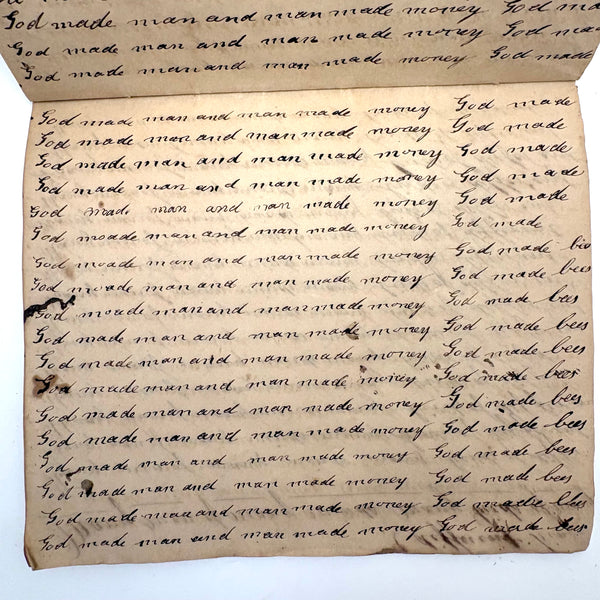 God made man and man made money God ma
God made man and man made money God ma
God made man and man made money God made
God made man and man made money God made
God made man and man made money God made
God made man and man made money God made
God made man and man made money God made
God made man and man made money God made
God moade man and man made money God made
God moade man and man made money God made bee
God moade man and man made money God made bees
God moade man and man made money God made bees
God made man and man made money God made bees
God made man and man made money God made bees
God made man and man made money God made bees
God made man and man made money God made bees
God made man and man made money God made bees
God made man and man made money God made bees
God made man and man made money God made bees
God made man and man made money God made bees
God made man and man made money God made bees